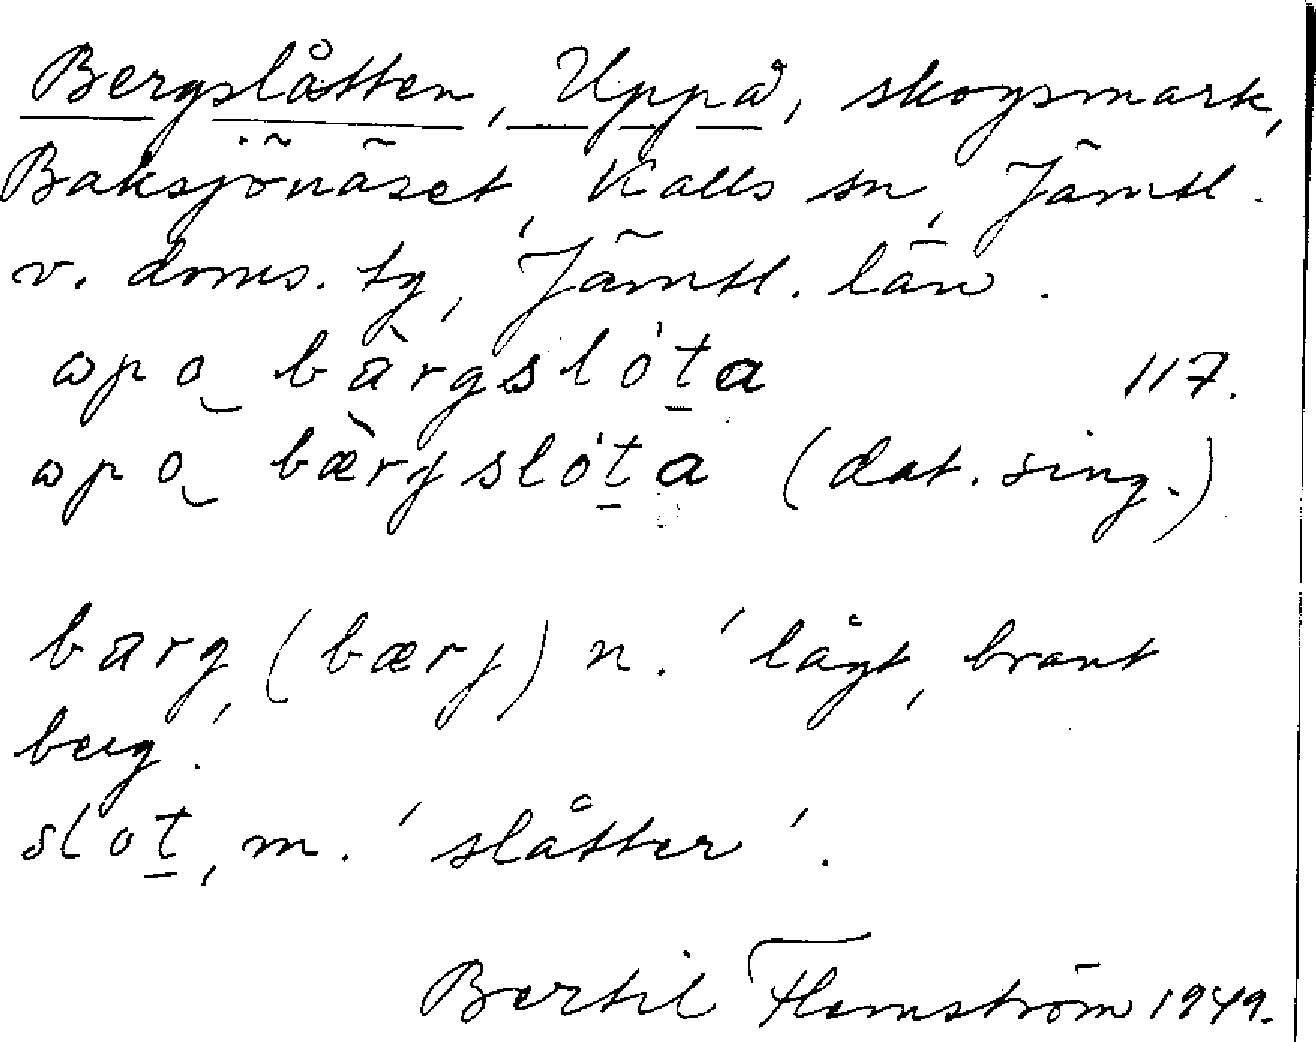 Bergslåtten, Uppå, skogsmark,
Baksjönäset, Kalls sn, Jämtl.
v. doms. tg, Jämtl. län.
ωpo̮ bàrgslót̲a 117.
ωpo̮ bæ̀rjslót̲a (dat. sing.)
barg, (bærj) n. 'lågt, brant
berg'.
slot̲, m. 'slåtter'.
Bertil Flemström 1949.